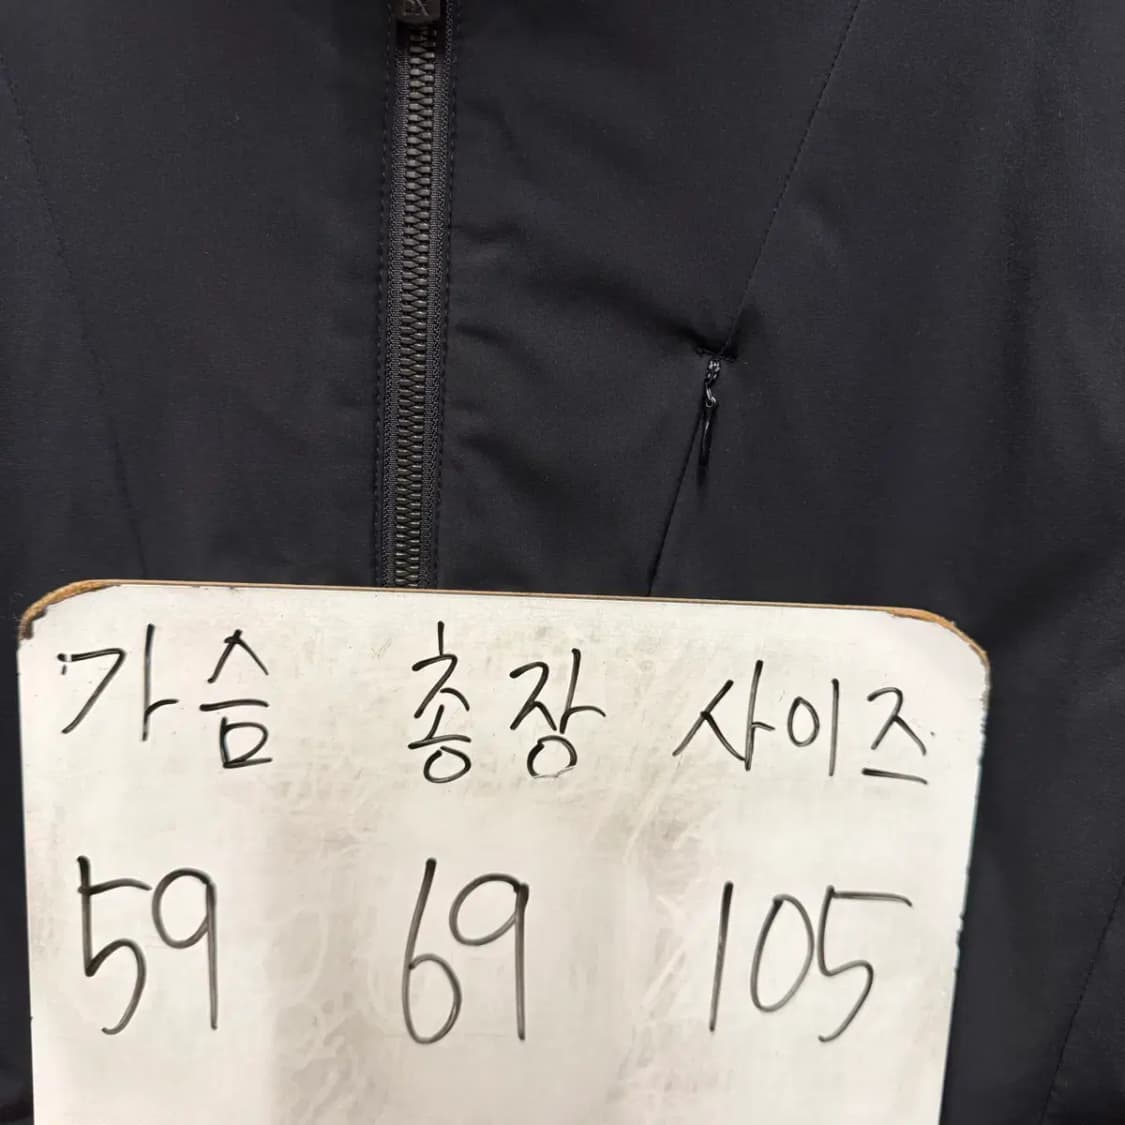 가슴 총장 사이즈
59 69 105